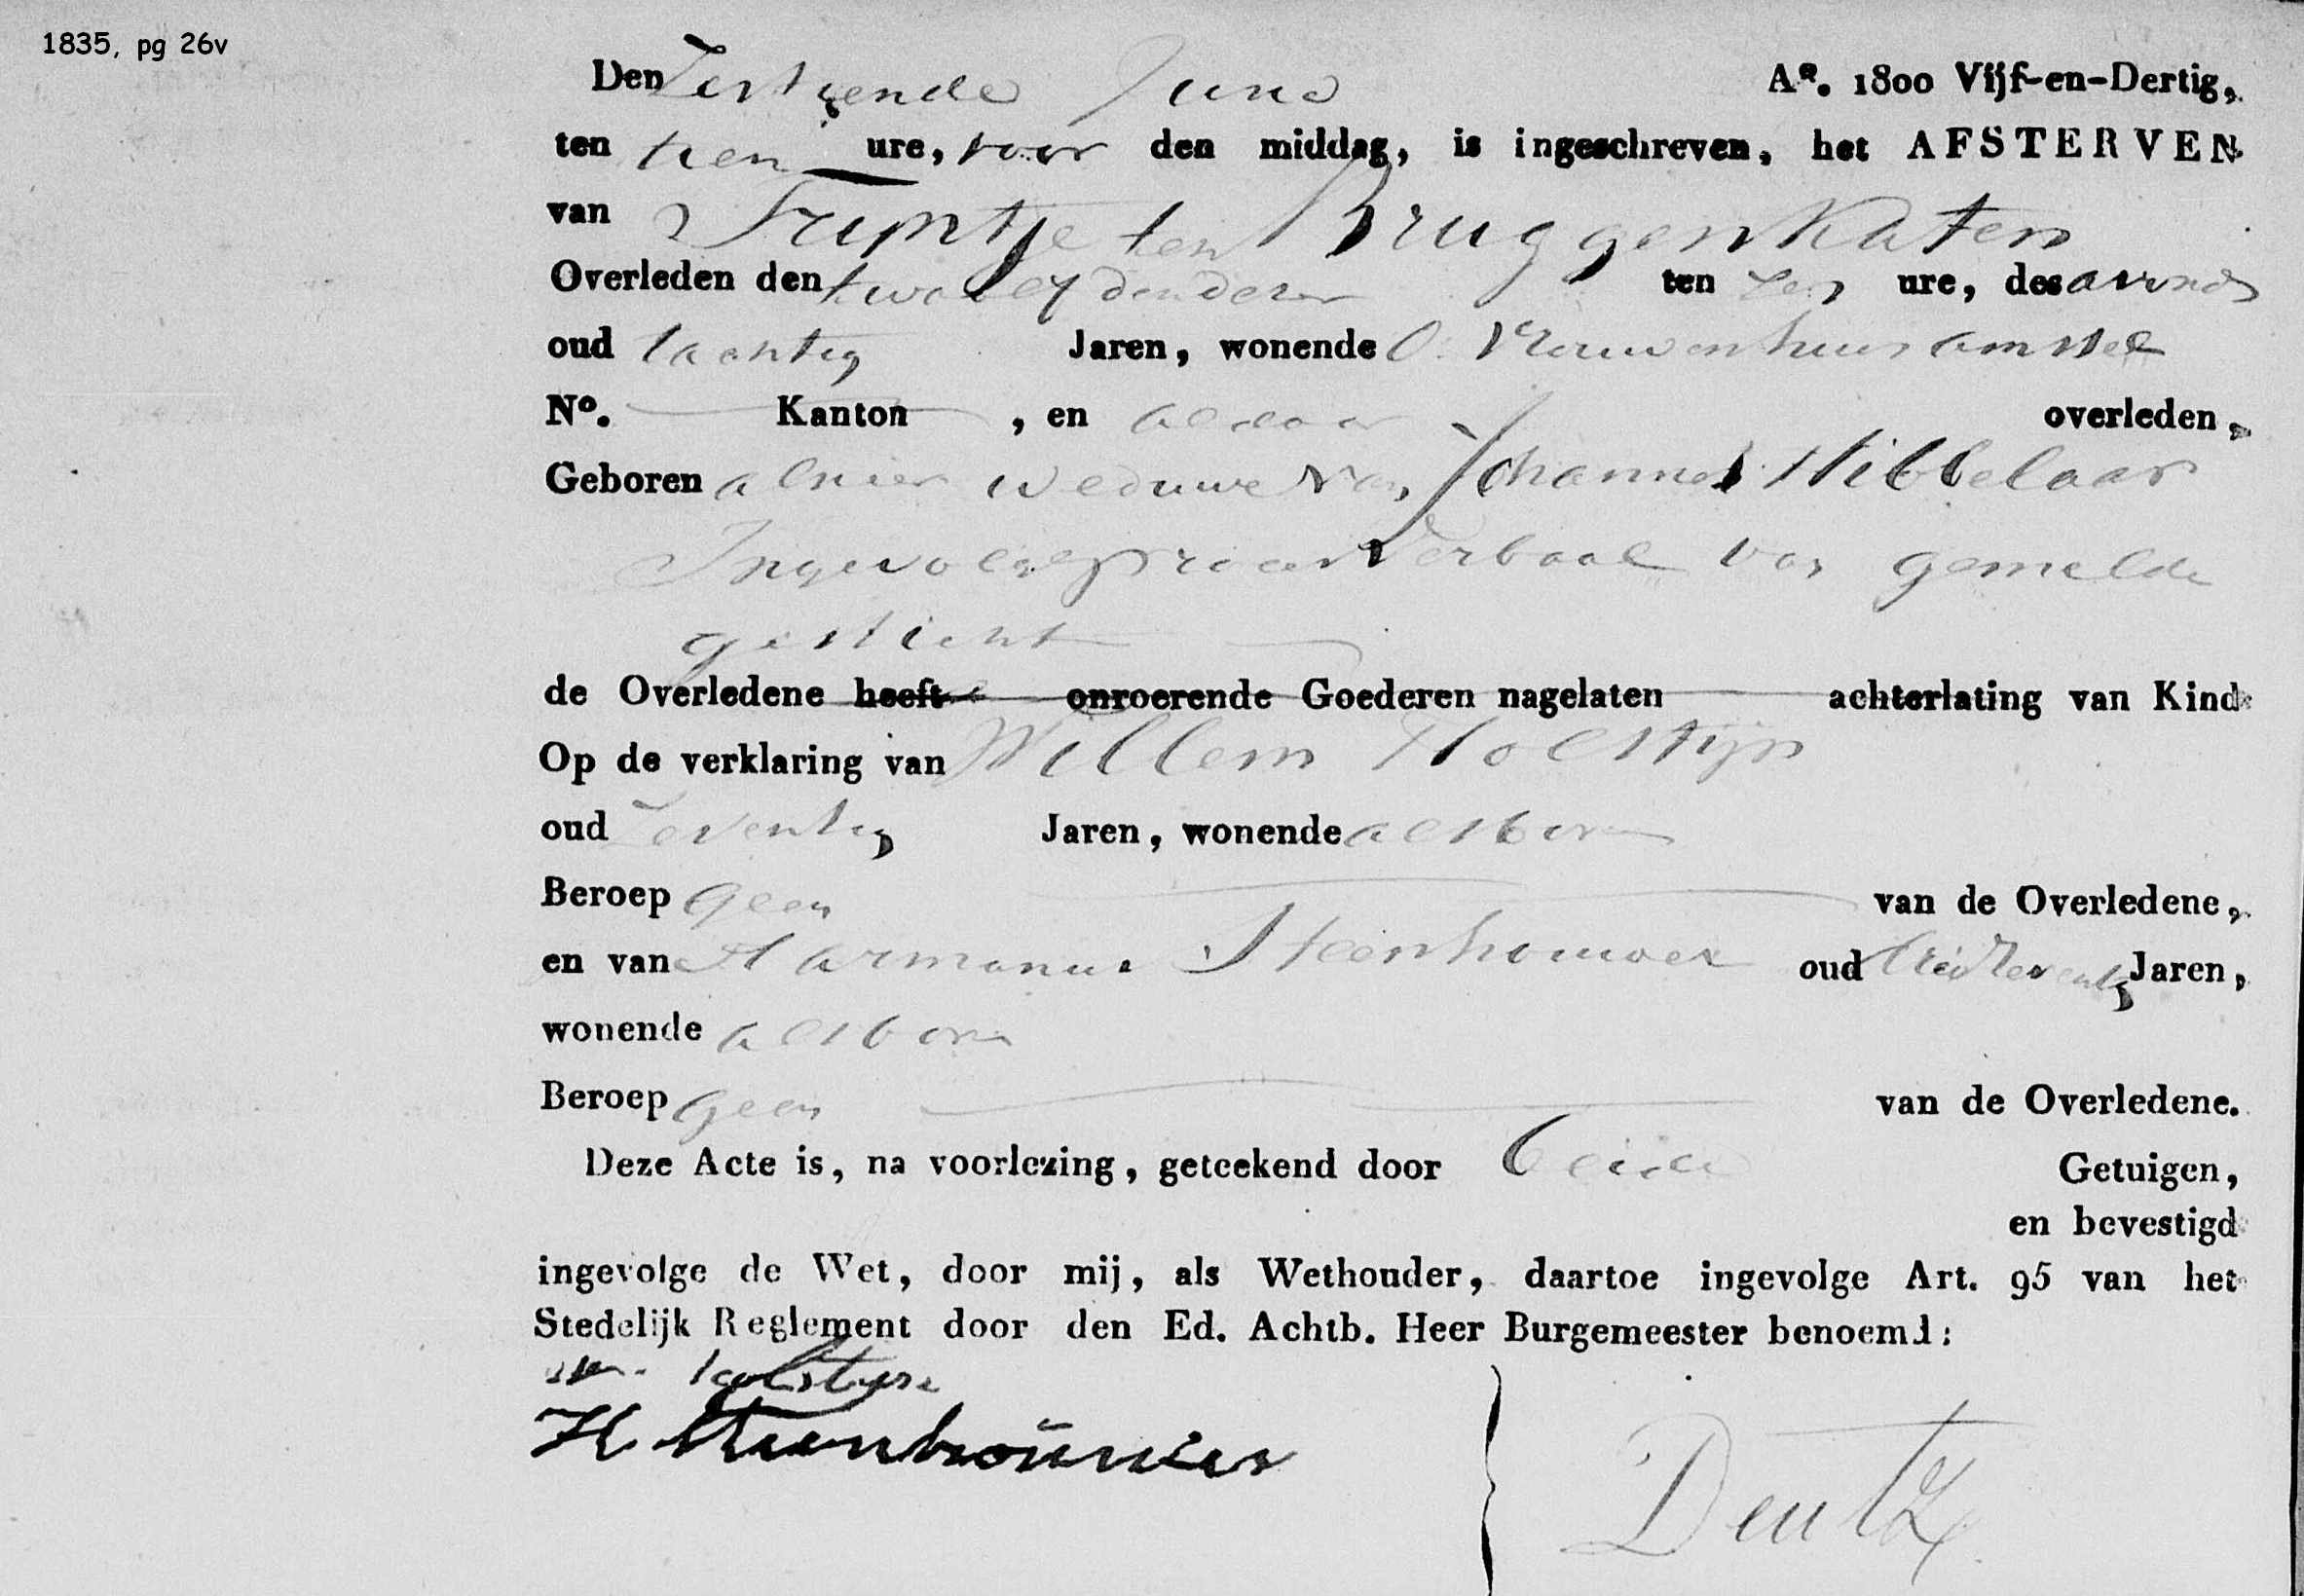 1835, pg 26v
Den Zestiende Juno Ao. 1800 Vijf-en-Dertig,
ten tien ure, voor den middag, is ingeschreven, het AFSTERVEN
van Trijntje ten Bruggenkaten
Overleden den twaalf dender ten zes ure, des avonds
oud tachtig Jaren, wonende O. Vrouwenhuis amstel
No. Kanton , en aldaar overleden,
Geboren alhier weduwe van Johannes Hibbelaar
Ingevolge Proces Verbaal van gemelde
gesticht
de Overledene heeft onroerende Goederen nagelaten achterlating van Kind
Op de verklaring van Willem Holstijn
oud Zeventig Jaren, wonende als boven
Beroep Geen van de Overledene,
en van Harmanus Steenhouwer oud Jaren,
wonende als boven
Beroep Geen van de Overledene.
Deze Acte is, na voorlezing, geteekend door beide Getuigen,
en bevestigd
ingevolge de Wet, door mij, als Wethouder, daartoe ingevolge Art. 95 van het
Stedelijk Reglement door den Ed. Achtb. Heer Burgemeester benoemd:
W. holstijn
H Steenhouwer
Deutz